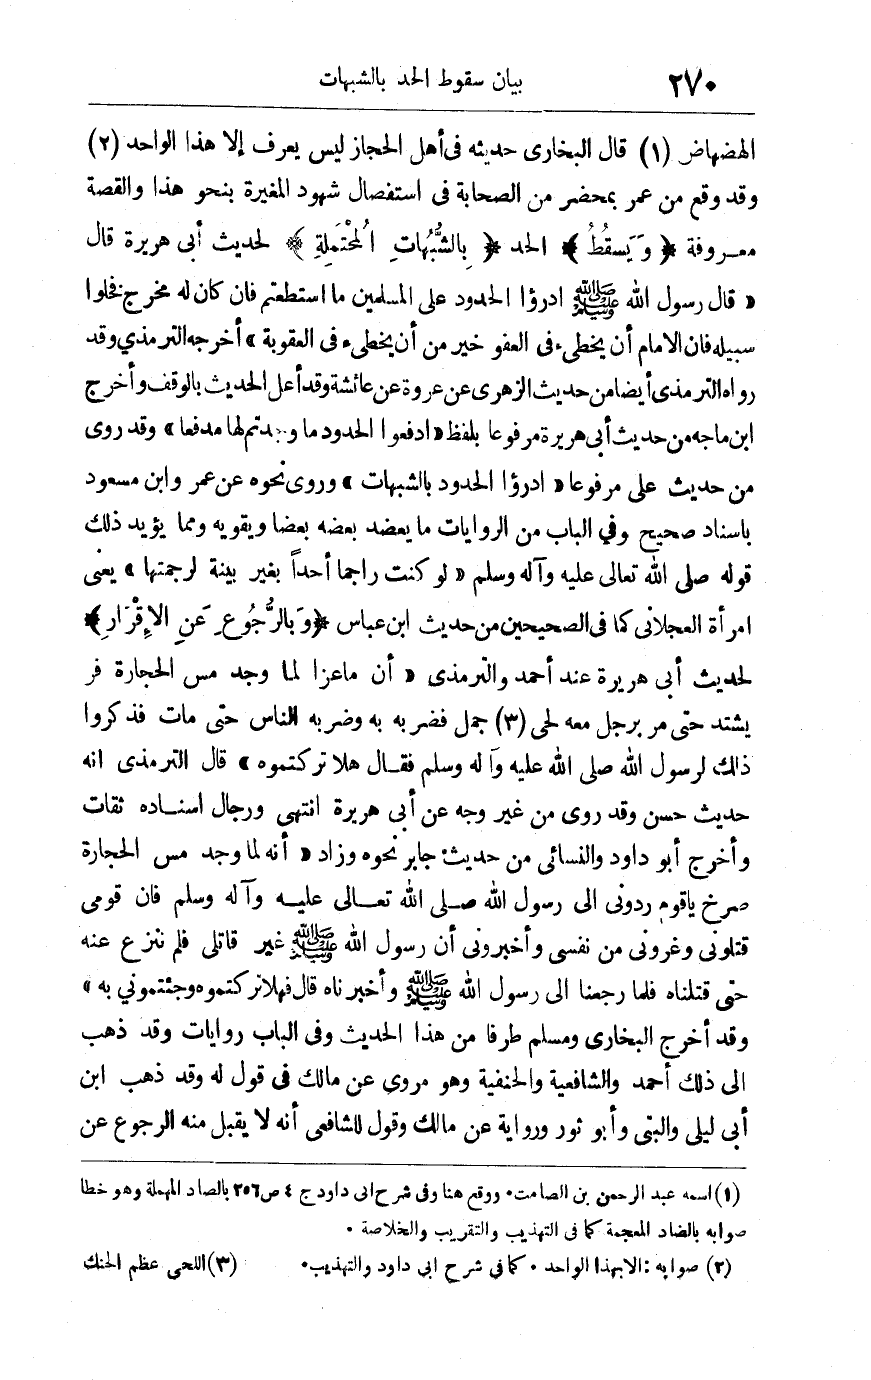 ٢٧٠ بيان سقوط الحد بالشبهات
الهضهاض (١) قال البخارى حديثه فى أهل الحجاز ليس يعرف إلا هذا الواحد (٢)
وقد وقع من عمر بمحضر من الصحابة فى استفصال شهود المغيرة بنحو هذا والقصة
معروفة ﴿ وَيَسقُطُ ﴾ الحد ﴿ بِالشُّبُهاتِ المُحْتَمَلَةِ ﴾ لحديث أبى هريرة قال
« قال رسول الله ﷺ ادرؤا الحدود على المسلمين ما استطعتم فان كان له مخرج فخلوا
سبيله فان الامام أن يخطىء فى العفو خير من أن يخطىء فى العقوبة » أخرجه الترمذي وقد
رواه الترمذى أيضا من حديث الزهرى عن عروة عن عائشة وقد أعل الحديث بالوقف وأخرج
ابن ماجه من حديث أبى هريرة مرفوعا بلفظ « ادفعوا الحدود ما وجدتم لها مدفعا » وقد روى
من حديث على مرفوعا « ادرؤا الحدود بالشبهات » وروى نحوه عن عمر وابن مسعود
باسناد صحيح وفي الباب من الروايات ما يعضد بعضه بعضا ويقويه ومما يؤيد ذلك
قوله صلى الله تعالى عليه وآله وسلم « لو كنت راجما أحداً بغير بينة لرجمتها » يعنى
امرأة العجلانى كما فى الصحيحين من حديث ابن عباس ﴿ وَبالرُّجُوعِ عَنِ الإِقْرَارِ ﴾
لحديث أبى هريرة عند أحمد والترمذى « أن ماعزا لما وجد مس الحجارة فر
يشتد حتى مر برجل معه لحى (٣) جمل فضربه به وضربه الناس حتى مات فذكروا
ذلك لرسول الله صلى الله عليه وآله وسلم فقال هلا تركتموه » قال الترمذى انه
حديث حسن وقد روى من غير وجه عن أبى هريرة انتهى ورجال اسناده ثقات
وأخرج أبو داود والنسائى من حديث جابر نحوه وزاد « أنه لما وجد مس الحجارة
صرخ ياقوم ردونى الى رسول الله صلى الله تعالى عليه وآله وسلم فان قومى
قتلونى وغرونى من نفسى وأخبرونى أن رسول الله ﷺ غير قاتلى فلم ننزع عنه
حتى قتلناه فلما رجعنا الى رسول الله ﷺ وأخبرناه قال فهلا تركتموه وجئتموني به »
وقد أخرج البخارى ومسلم طرفا من هذا الحديث وفى الباب روايات وقد ذهب
الى ذلك أحمد والشافعية والحنفية وهو مروي عن مالك فى قول له وقد ذهب ابن
أبى ليلى والبتى وأبو ثور ورواية عن مالك وقول للشافعى أنه لا يقبل منه الرجوع عن
(١) اسمه عبد الرحمن بن الصامت. ووقع هنا وفى شرح ابى داود ج ٤ ص ٢٥٦ بالصاد المهملة وهو خطا
صوابه بالضاد المعجمة كما فى التهذيب والتقريب والخلاصة .
(٢) صوابه : الابهذا الواحد . كما في شرح ابي داود والتهذيب. (٣) اللحى عظم الحنك